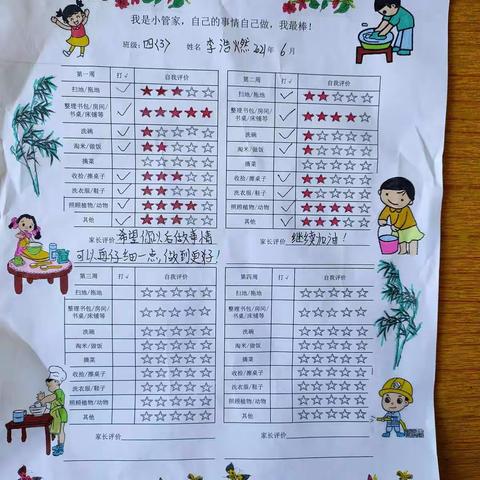 我是小管家，自己的事情自己做，我最棒！
班级: 四(3) 姓名 李浩燃 2021年 6月
第一周 打√ 自我评价
扫地/拖地 √ ★★★☆☆
整理书包/房间/书桌/床铺等 √ ★★★★★
洗碗 √ ★☆☆☆☆
淘米/做饭 √ ★★☆☆☆
摘菜 ☆☆☆☆☆
收拾/擦桌子 √ ★★★☆☆
洗衣服/鞋子 √ ★★★☆☆
照顾植物/动物 √ ★★★★☆
其他 √ ★★★☆☆
家长评价 希望你以后做事情
可以再仔细一点,做到更好!
第二周 打√ 自我评价
扫地/拖地 √ ★★☆☆☆
整理书包/房间/书桌/床铺等 √ ★★★★☆
洗碗 √ ★☆☆☆☆
淘米/做饭 √ ★☆☆☆☆
摘菜 ☆☆☆☆☆
收拾/擦桌子 √ ★★☆☆☆
洗衣服/鞋子 √ ★★☆☆☆
照顾植物/动物 √ ★★★★☆
其他 √ ★★★☆☆
家长评价 继续加油!
第三周 打√ 自我评价
扫地/拖地 ☆☆☆☆☆
整理书包/房间/书桌/床铺等 ☆☆☆☆☆
洗碗 ☆☆☆☆☆
淘米/做饭 ☆☆☆☆☆
摘菜 ☆☆☆☆☆
收拾/擦桌子 ☆☆☆☆☆
洗衣服/鞋子 ☆☆☆☆☆
照顾植物/动物 ☆☆☆☆☆
其他 ☆☆☆☆☆
家长评价
第四周 打√ 自我评价
扫地/拖地 ☆☆☆☆☆
整理书包/房间/书桌/床铺等 ☆☆☆☆☆
洗碗 ☆☆☆☆☆
淘米/做饭 ☆☆☆☆☆
摘菜 ☆☆☆☆☆
收拾/擦桌子 ☆☆☆☆☆
洗衣服/鞋子 ☆☆☆☆☆
照顾植物/动物 ☆☆☆☆☆
其他 ☆☆☆☆☆
家长评价